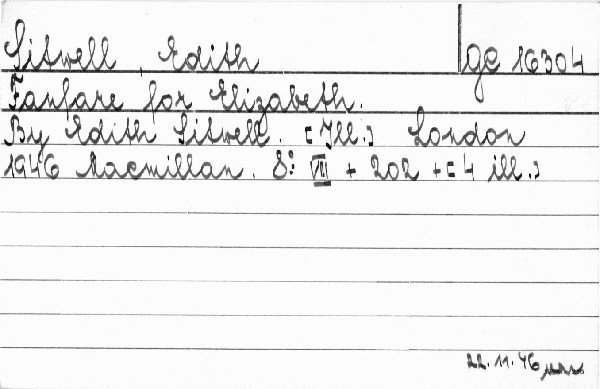 Sitwell, Edith gc 16304
Fanfare for Elizabeth.
By Edith Sitwell. [Ill.] London
1946 Macmillan. 8° VIII + 202 + [4 ill.]
22.11.46